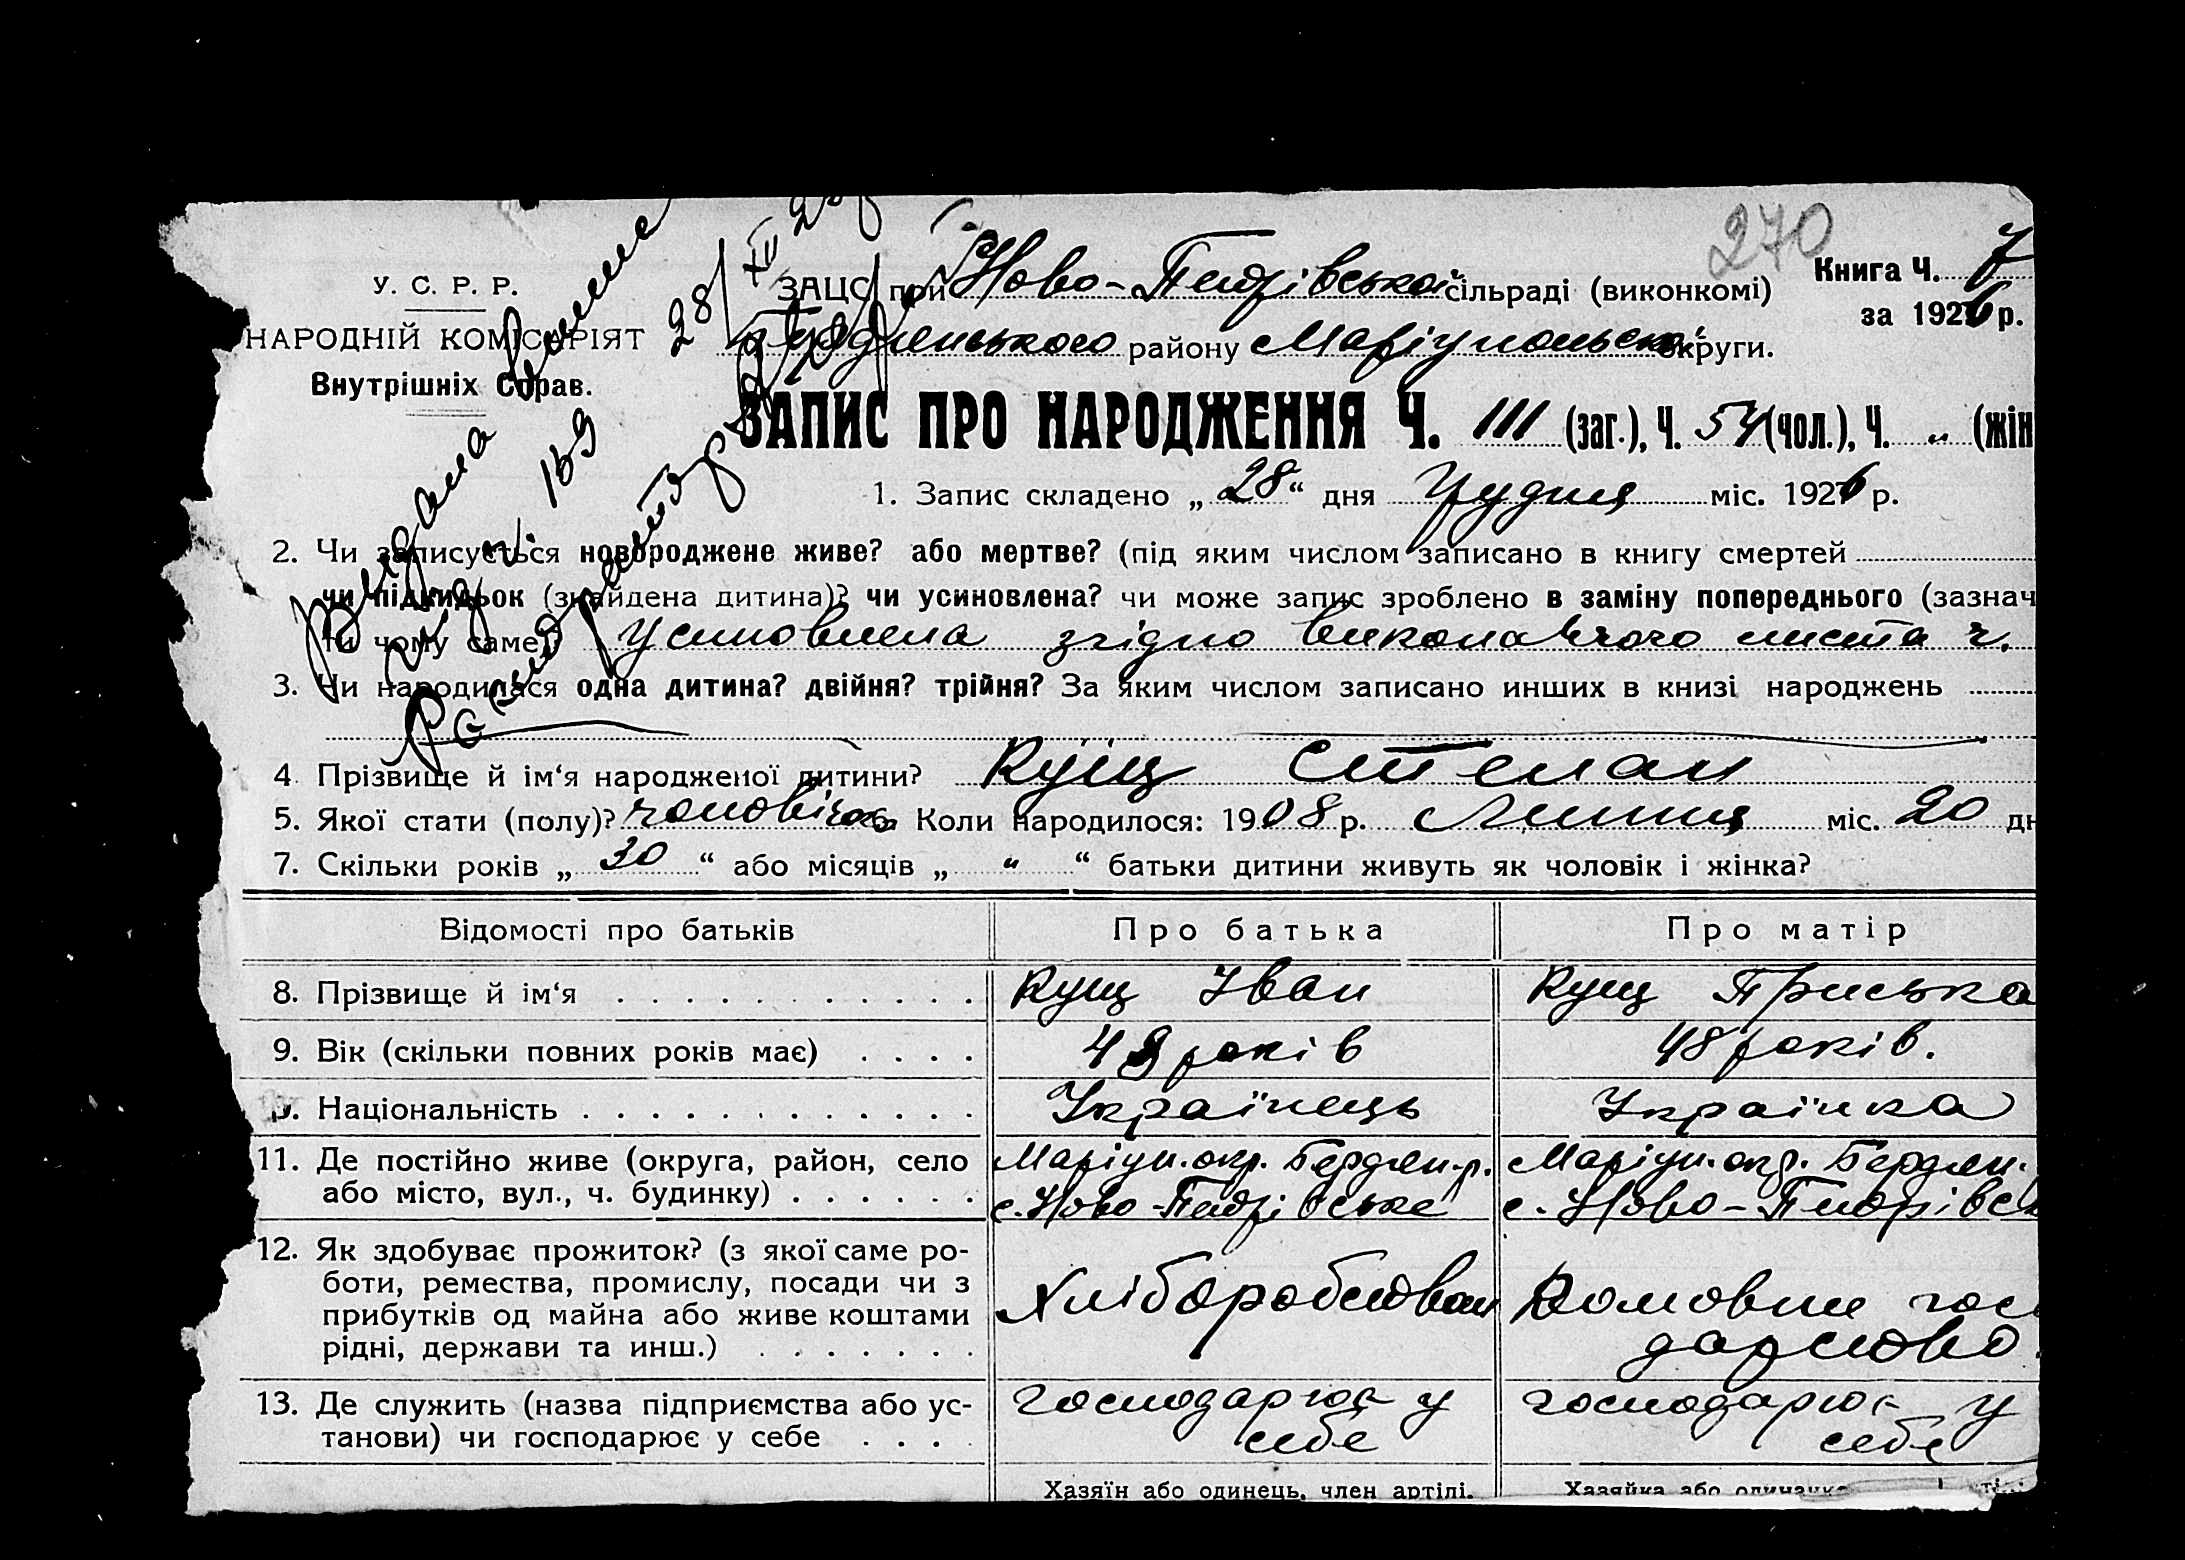 270
У. С. Р. Р.
НАРОДНІЙ КОМІСАРІЯТ
Внутрішніх Справ.
Видана
28/XII
189
ЗАЦС при Ново-Петрівській сільраді (виконкомі)
Книга Ч. 7
за 1926 р.
району Маріупольської округи.
ЗАПИС ПРО НАРОДЖЕННЯ Ч. 111 (заг.), Ч. 54 (чол.), Ч. „ (жін
1. Запис складено „28“ дня Грудня міс. 1926 р.
2. Чи записується новороджене живе? або мертве? (під яким числом записано в книгу смертей
чи підкидьок (знайдена дитина)? чи усиновлена? чи може запис зроблено в заміну попереднього (зазнач
ти чому саме)? Усиновлена згідно виконавчого листа ч.
3. Чи народилася одна дитина? двійня? трійня? За яким числом записано инших в книзі народжень
4. Прізвище й ім‘я народженої дитини? Кущ Степан
5. Якої стати (полу)? чоловічої Коли народилося: 1908 р. Липня міс. 20 дн
7. Скільки років „30“ або місяців „ „ “ батьки дитини живуть як чоловік і жінка?
Відомості про батьків Про батька Про матір
8. Прізвище й ім‘я Кущ Іван Кущ Приська
9. Вік (скільки повних років має) 48 років 48 років.
Національність Українець Українка
11. Де постійно живе (округа, район, село Маріуп. окр. Бердян. р. Маріуп. окр. Бердян.
або місто, вул., ч. будинку) с. Ново-Петрівське с. Ново-Петрівсь
12. Як здобуває прожиток? (з якої саме ро-
боти, ремества, промислу, посади чи з
прибутків од майна або живе коштами Хліборобством Домовим гос
рідні, держави та инш.) дарством
13. Де служить (назва підприємства або ус- господарює у господарює у
танови) чи господарює у себе себе себе
Хазяїн або одинець, член артілі. Хазяйка або одиначка